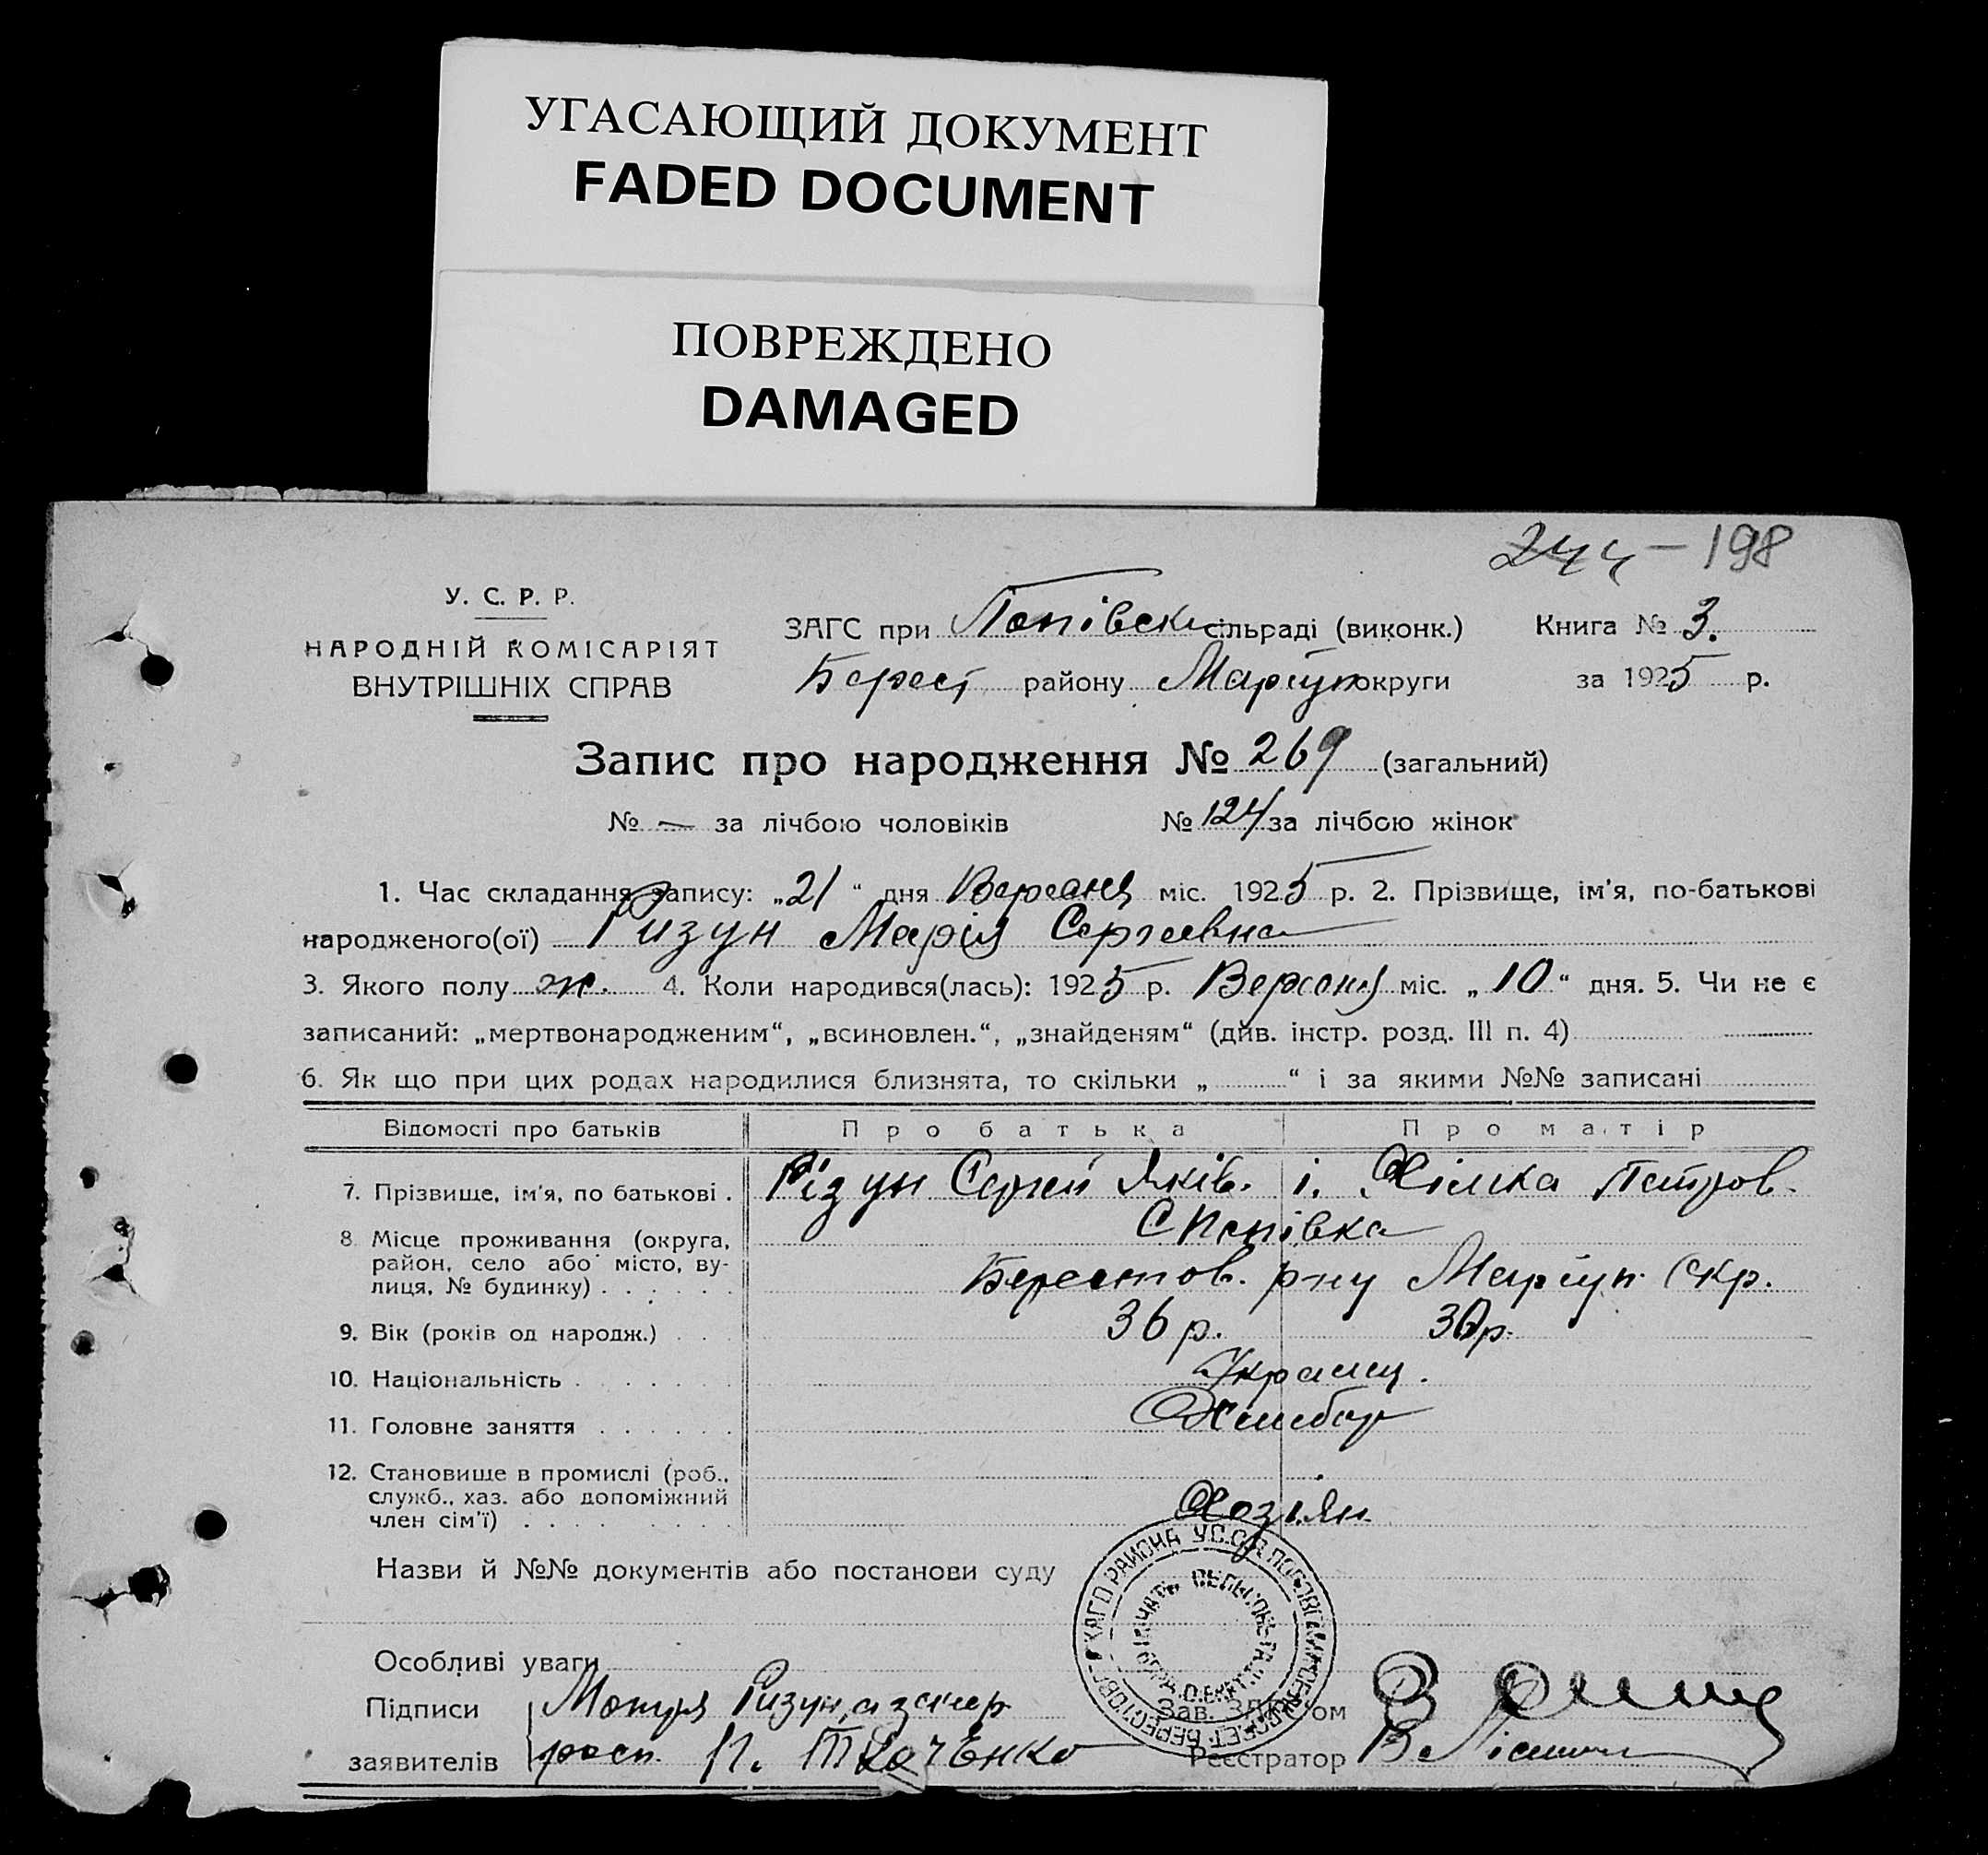 УГАСАЮЩИЙ ДОКУМЕНТ
FADED DOCUMENT
ПОВРЕЖДЕНО
DAMAGED
244 – 198
У. С. Р. Р.
НАРОДНІЙ КОМІСАРІЯТ
ВНУТРІШНІХ СПРАВ
ЗАГС при Попівськ сільраді (виконк.) Книга № 3.
Берест району Маріуп округи за 1925 р.
Запис про народження № 269 (загальний)
№ — за лічбою чоловіків № 124 за лічбою жінок
1. Час складання запису: „21“ дня Вересня міс. 1925 р. 2. Прізвище, ім'я, по-батькові
народженого(ої) Ризун Марія Сергеевна
3. Якого полу ж. 4. Коли народився(лась): 1925 р. Вересня міс. „10“ дня. 5. Чи не є
записаний: „мертвонародженим“, „всиновлен.“, „знайденям“ (див. інстр. розд. III п. 4)
6. Як що при цих родах народилися близнята, то скільки „ “ і за якими №№ записані
Відомості про батьків Про батька Про матір
7. Прізвище, ім'я, по батькові . Різун Сергей Яків. і. Хімка Петров.
8 Місце проживання (округа, район, село або місто, вулиця, № будинку) . . . . . . С Попівка
Берестов. р-ну Маріуп. Окр.
9. Вік (років од народж.) . . . 36 р. 30 р.
10. Національність . . . . . . . Украинц.
11. Головне заняття . . . . . . Хлибор
12. Становище в промислі (роб., служб., хаз. або допоміжний член сім'ї) . . . . . . . Хозяин
Назви й №№ документів або постанови суду
Особливі уваги
Підписи Мотря Ризун, а за неер
Зав. ЗАГС'ом
заявителів росп. П. ТкачЕнко
Реєстратор